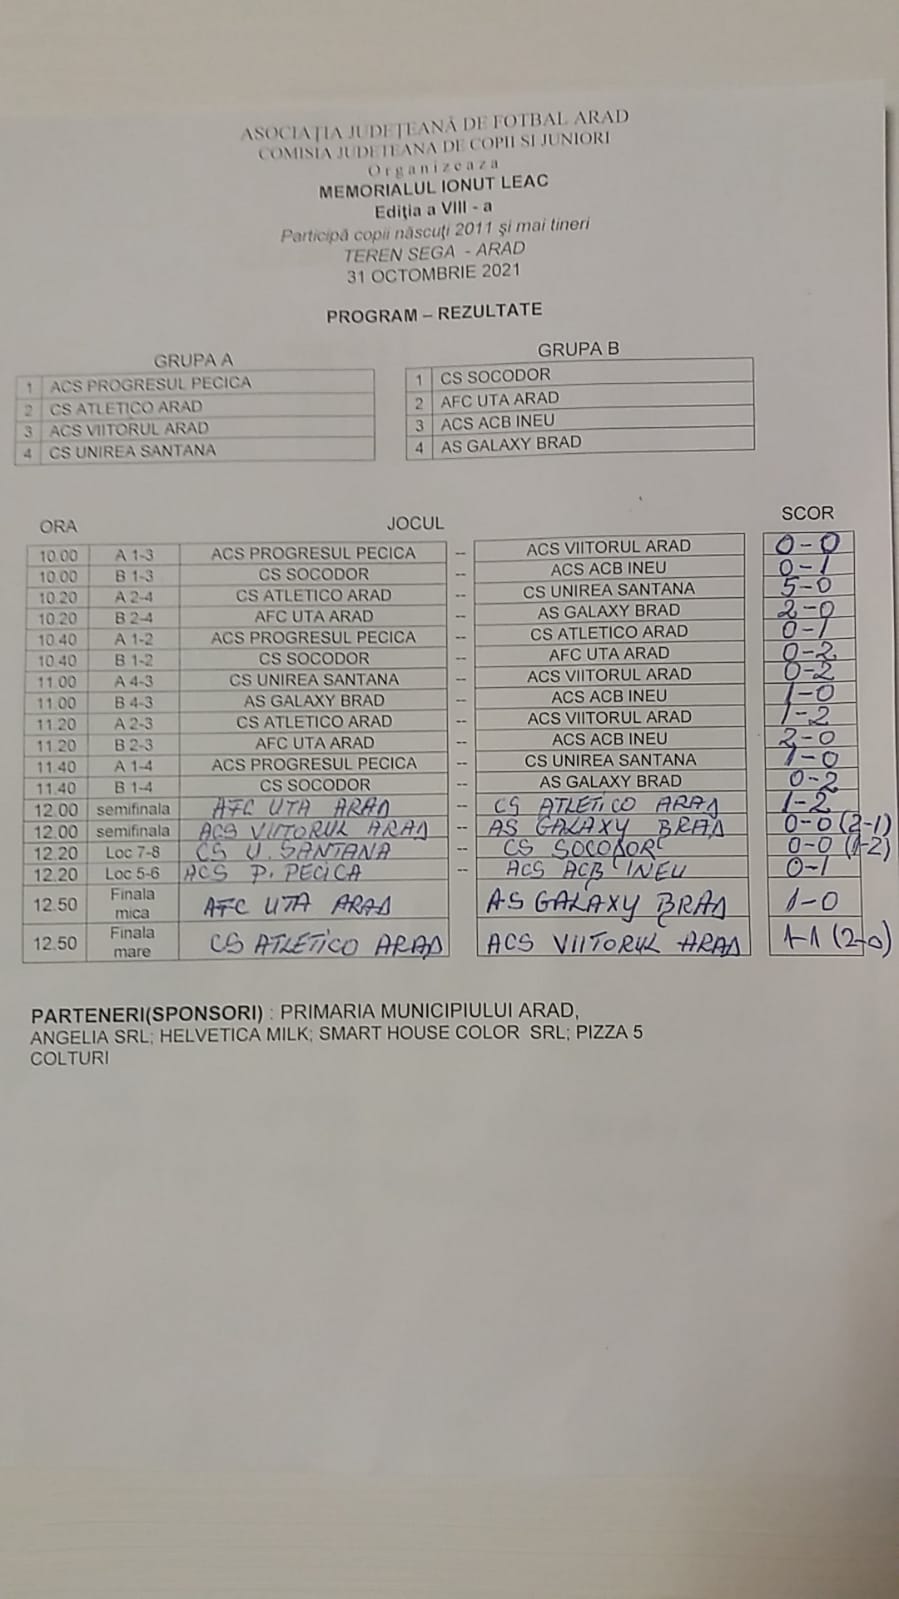 ASOCIAŢIA JUDEŢEANĂ DE FOTBAL ARAD
COMISIA JUDETEANA DE COPII SI JUNIORI
Organizeaza
MEMORIALUL IONUT LEAC
Ediţia a VIII - a
Participă copii născuţi 2011 şi mai tineri
TEREN SEGA - ARAD
31 OCTOMBRIE 2021
PROGRAM – REZULTATE
GRUPA A
1 ACS PROGRESUL PECICA
2 CS ATLETICO ARAD
3 ACS VIITORUL ARAD
4 CS UNIREA SANTANA
GRUPA B
1 CS SOCODOR
2 AFC UTA ARAD
3 ACS ACB INEU
4 AS GALAXY BRAD
ORA JOCUL SCOR
10.00 A 1-3 ACS PROGRESUL PECICA -- ACS VIITORUL ARAD 0-0
10.00 B 1-3 CS SOCODOR -- ACS ACB INEU 0-1
10.20 A 2-4 CS ATLETICO ARAD -- CS UNIREA SANTANA 5-0
10.20 B 2-4 AFC UTA ARAD -- AS GALAXY BRAD 2-0
10.40 A 1-2 ACS PROGRESUL PECICA -- CS ATLETICO ARAD 0-1
10.40 B 1-2 CS SOCODOR -- AFC UTA ARAD 0-2
11.00 A 4-3 CS UNIREA SANTANA -- ACS VIITORUL ARAD 0-2
11.00 B 4-3 AS GALAXY BRAD -- ACS ACB INEU 1-0
11.20 A 2-3 CS ATLETICO ARAD -- ACS VIITORUL ARAD 1-2
11.20 B 2-3 AFC UTA ARAD -- ACS ACB INEU 2-0
11.40 A 1-4 ACS PROGRESUL PECICA -- CS UNIREA SANTANA 1-0
11.40 B 1-4 CS SOCODOR -- AS GALAXY BRAD 0-2
12.00 semifinala AFC UTA ARAD -- CS ATLETICO ARAD 1-2
12.00 semifinala ACS VIITORUL ARAD -- AS GALAXY BRAD 0-0 (2-1)
12.20 Loc 7-8 CS U. SANTANA -- CS SOCODOR 0-0 (1-2)
12.20 Loc 5-6 ACS P. PECICA -- ACS ACB INEU 0-1
12.50 Finala mica AFC UTA ARAD AS GALAXY BRAD 1-0
12.50 Finala mare CS ATLETICO ARAD ACS VIITORUL ARAD 1-1 (2-0)
PARTENERI(SPONSORI) : PRIMARIA MUNICIPIULUI ARAD,
ANGELIA SRL; HELVETICA MILK; SMART HOUSE COLOR SRL; PIZZA 5
COLTURI